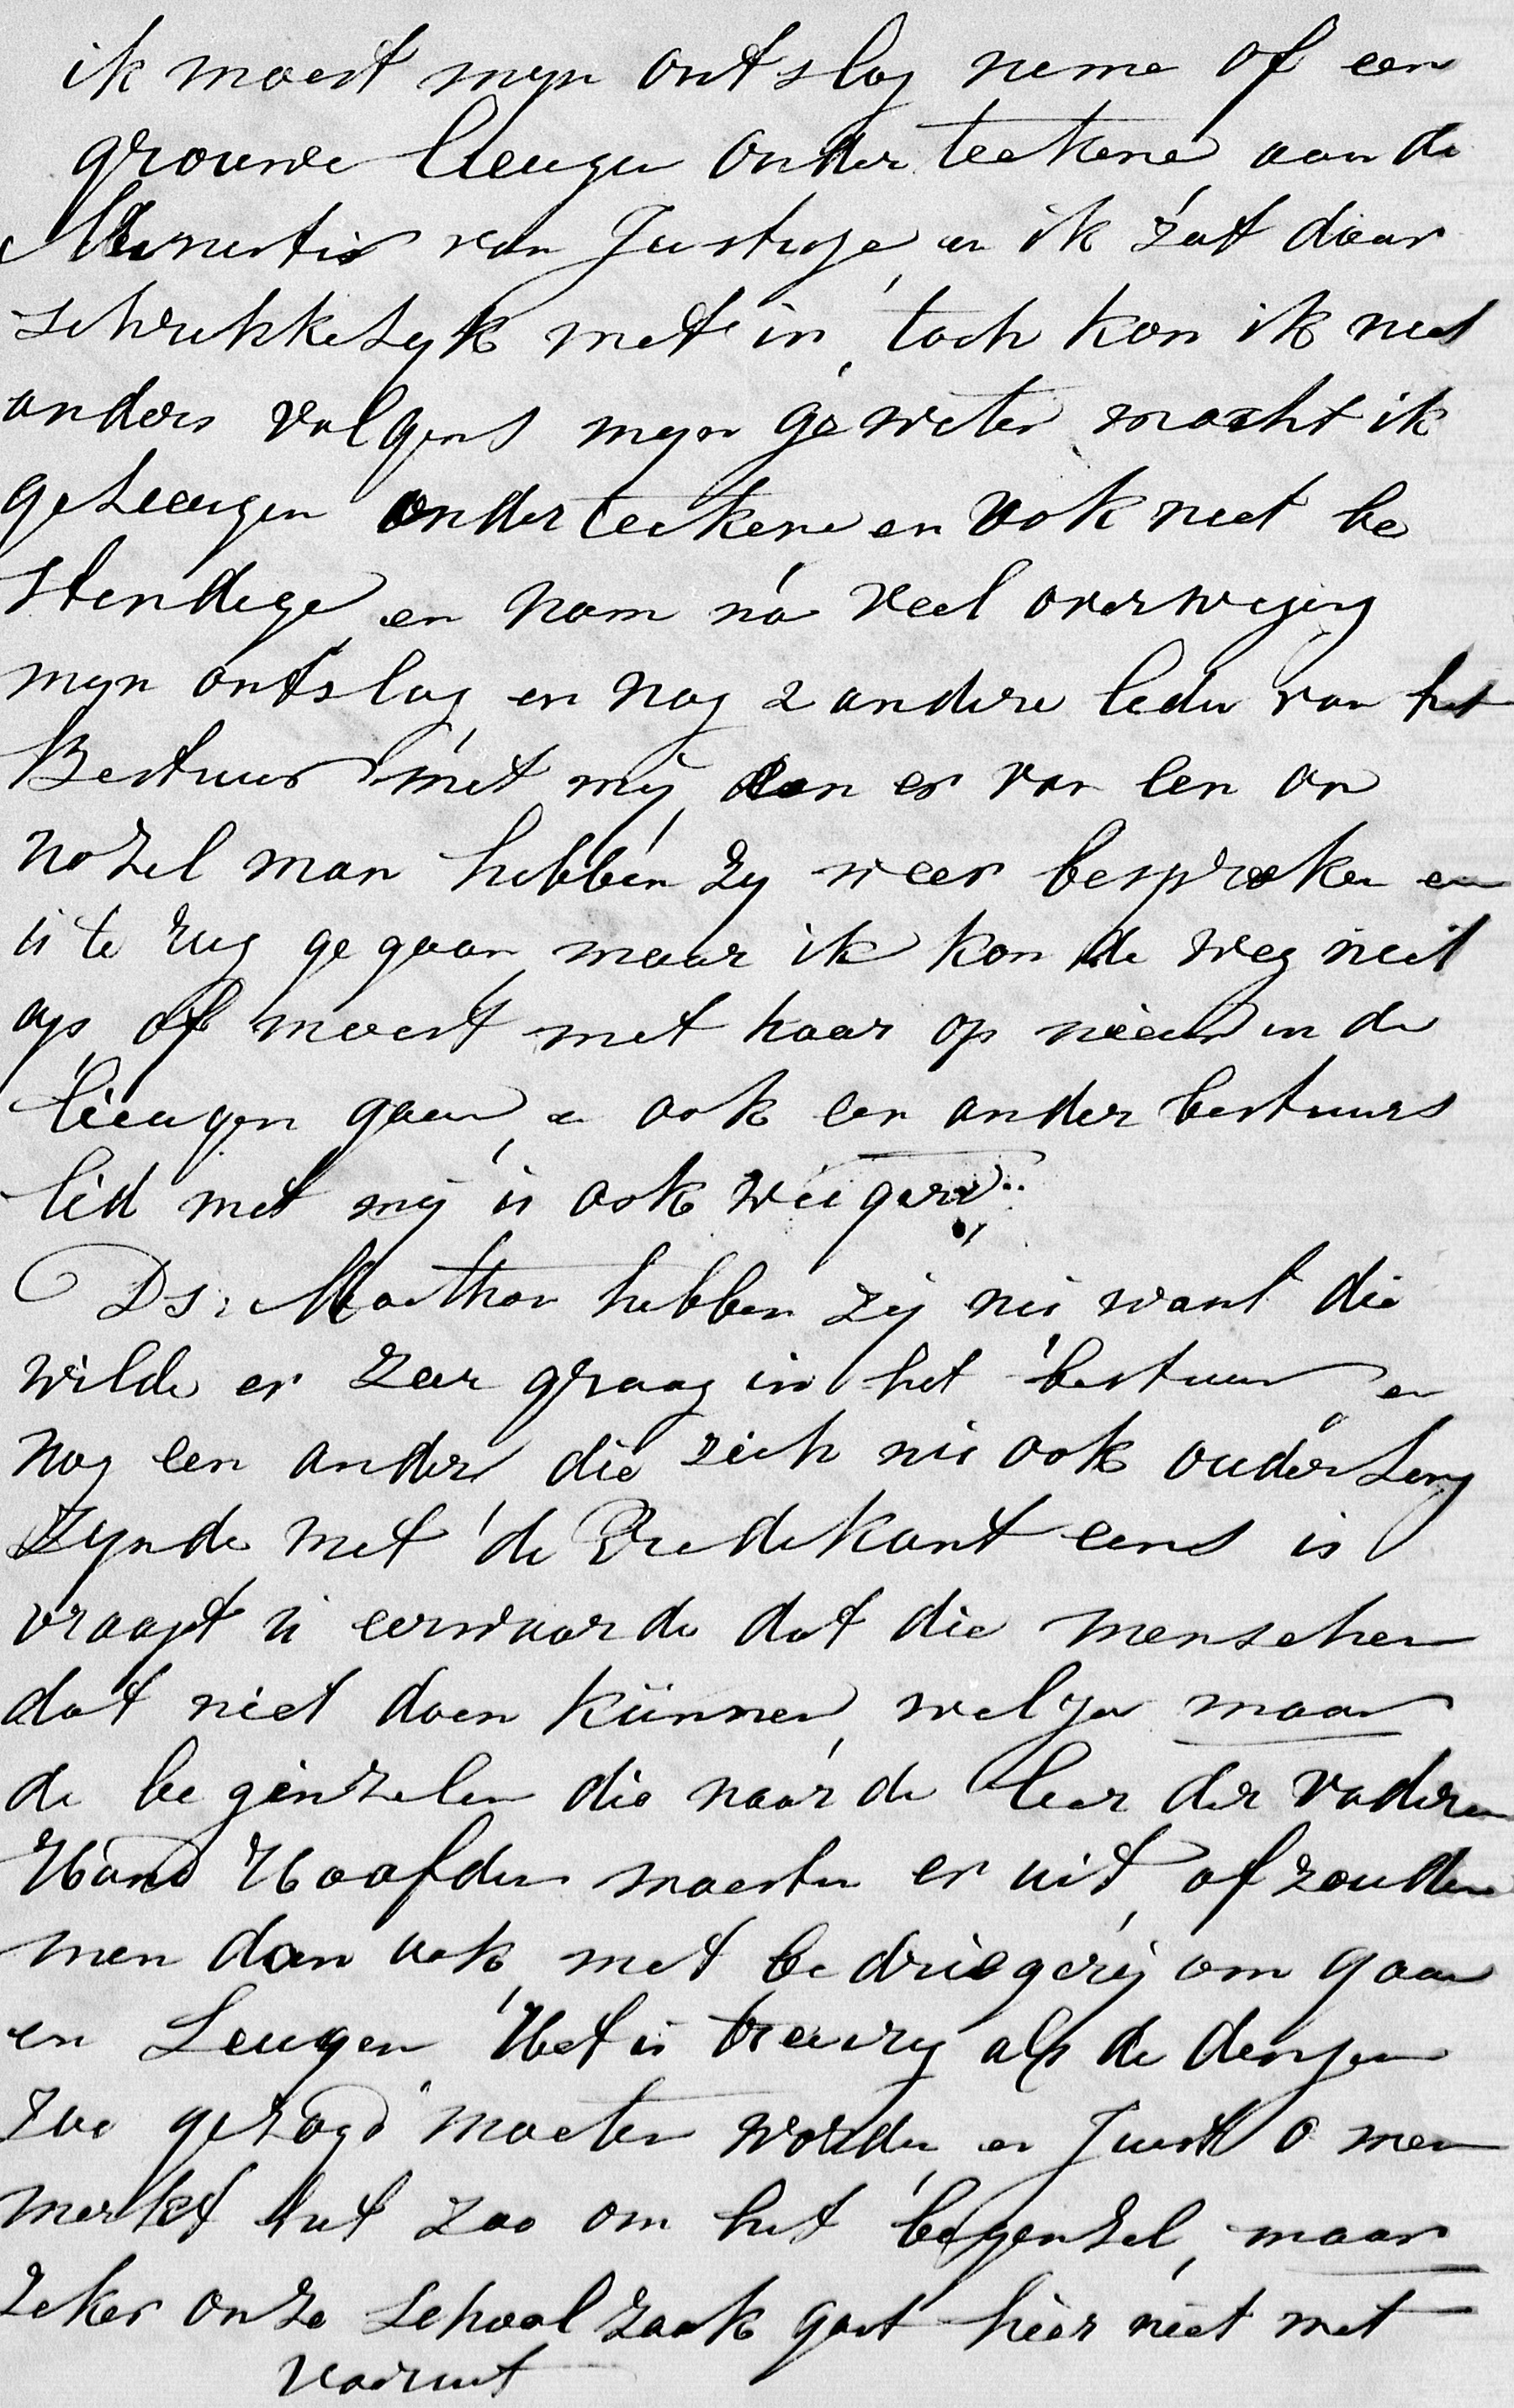 ik moest myn ontslag neme of een
grouwe lieugen onder teekene aan de
Minister van Justisje en ik zat daar
schrikkelyk met in, toch kon ik niet
anders volgens myn geweten mocht ik
geleeugen onderteekene en ook niet be
stendige en nam na veel overweging
myn ontslag en nog 2 andere leden van het
Bestuur met mij, dan er van een on
nozel man hebben zy weer besproken en
is te rug gegaan maar ik kon de weg niet
op of moest met haar op nieuw in de
lieugen gaan, en ook een ander bestuurs
lid met mij is ook wiegerd
Ds: Maathor hebben zij nu want die
wilde er zeer graag in het bestuur en
nog een ander die zich nu ook ouderling
zynde met de Predekant eens is
vraagt u eerwaarde dat die menschen
dat niet doen kunnen, wel ja maar
de beginzelen die naar de leer der vaderen
Hand Hoofden moesten er uit, of zouden
men dan ook met bedriegerij om gaan
en Leugen Het is treurig als de dengen
zoo gezogd moeten worden en Juist o men
merkt hut zoo om het begenzel, maar
zeker onze school zaak gaat hier niet met
voiruit